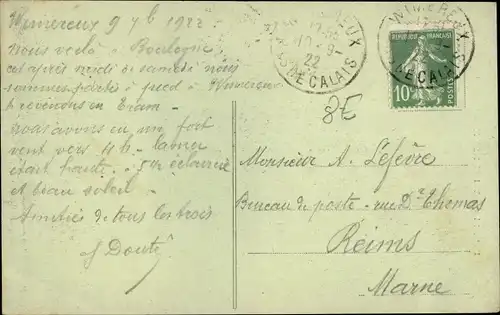 Wimereux 9 7b 1922 -
Nous voilà à Boulogne,
cet après midi de samedi nous
sommes partis à pied à Wimereux
& revenons en tram -
nous avons eu un fort
vent vers 4 h. la mer
était haute. - éclaircie
et beau soleil -
Amitiés de tous les trois
Douté
WIMEREUX
-9
22
PAS DE CALAIS
WIMEREUX
PAS DE CALAIS
REPUBLIQUE FRANÇAISE
10c
POSTES
8E
Monsieur A. Lefèvre
Bureau de poste - rue Dr Thomas
Reims
Marne